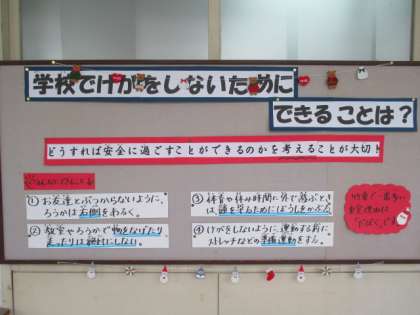 学校でけがをしないために
できることは？
どうすれば安全に過ごすことができるのかを考えることが大切！
①お友達とぶつからないように、
ろうかは右側をあるく。
②教室やろうかで物をなげたり
走ったりは絶対にしない。
③体育や休み時間に外で遊ぶとき
は、頭を守るためにぼうしをかぶる。
④けがをしないように、運動する前に
ストレッチなどの準備運動をする。